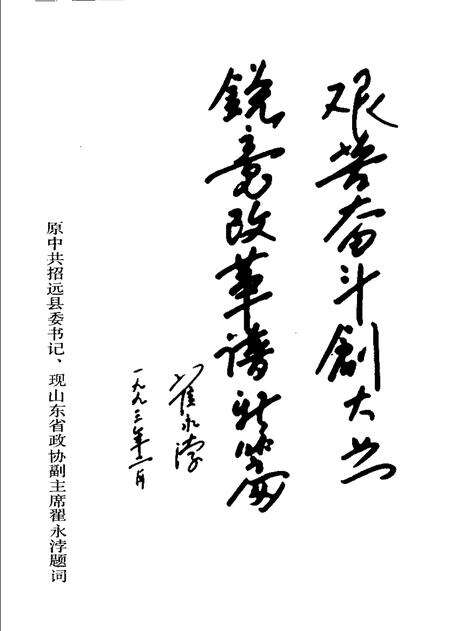 艰苦奋斗創大业
銳意改革谱新篇
翟永浡
一九九三年二月
原中共招远县委书记、现山东省政协副主席翟永浡题词